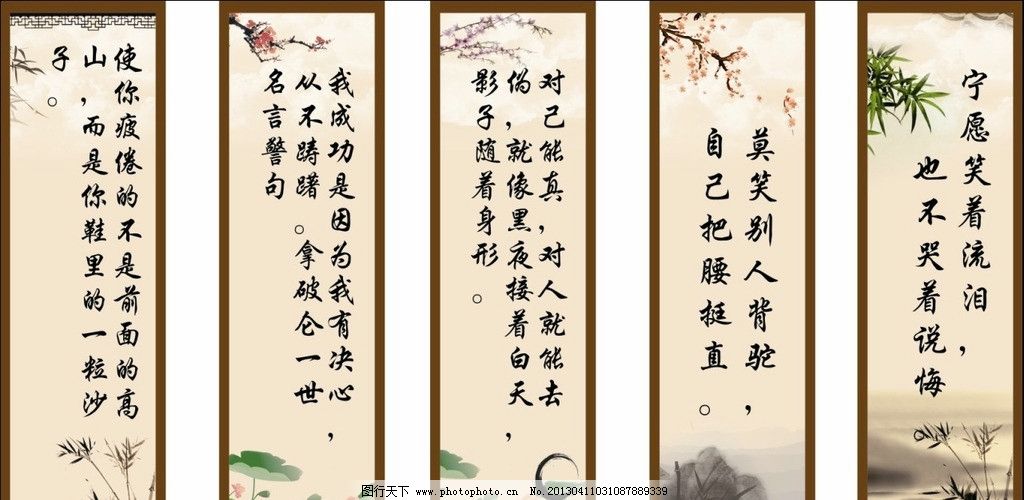 使你疲倦的不是前面的高
山,而是你鞋里的一粒沙
子。
我成功是因为我有决心,
从不踌躇。拿破仑一世
名言警句
对己能真,对人就能去
伪,就像黑夜接着白天,
影子随着身形。
莫笑别人背驼,
自己把腰挺直。
宁愿笑着流泪,
也不哭着说悔。
图行天下 www.photophoto.cn No.20130411031087889339